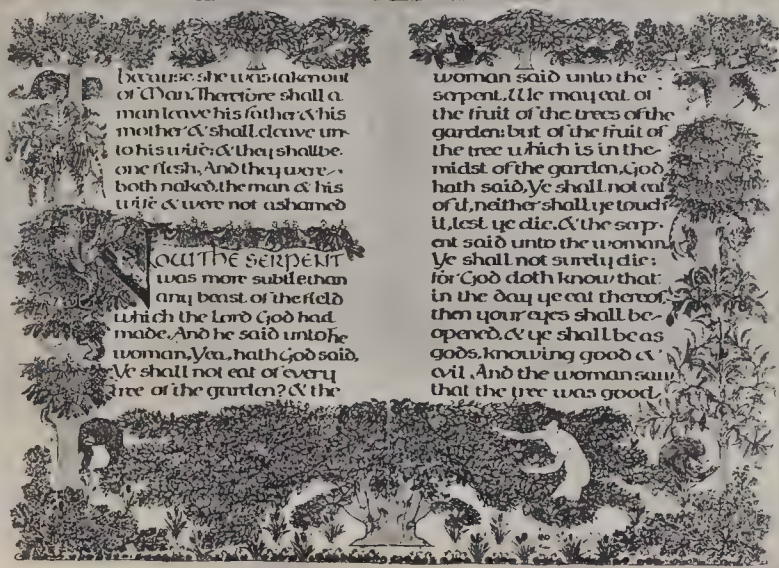 because she was taken out
of Man. Therefore shall a
man leave his father & his
mother & shall cleave un-
to his wife: & they shall be
one flesh, And they were
both naked, the man & his
wife & were not ashamed
NOW THE SERPENT
was more subtle than
any beast of the field
which the Lord God had
made. And he said unto he
woman, Yea, hath God said,
Ye shall not eat of every
tree of the garden? & the
woman said unto the
serpent, We may eat of
the fruit of the trees of the
garden: but of the fruit of
the tree which is in the
midst of the garden, God
hath said, Ye shall not eat
of it, neither shall ye touch
it, lest ye die. & the serp-
ent said unto the woman
Ye shall not surely die:
for God doth know that
in the day ye eat thereof,
then your eyes shall be
opened, & ye shall be as
gods, knowing good &
evil. And the woman saw
that the tree was good,